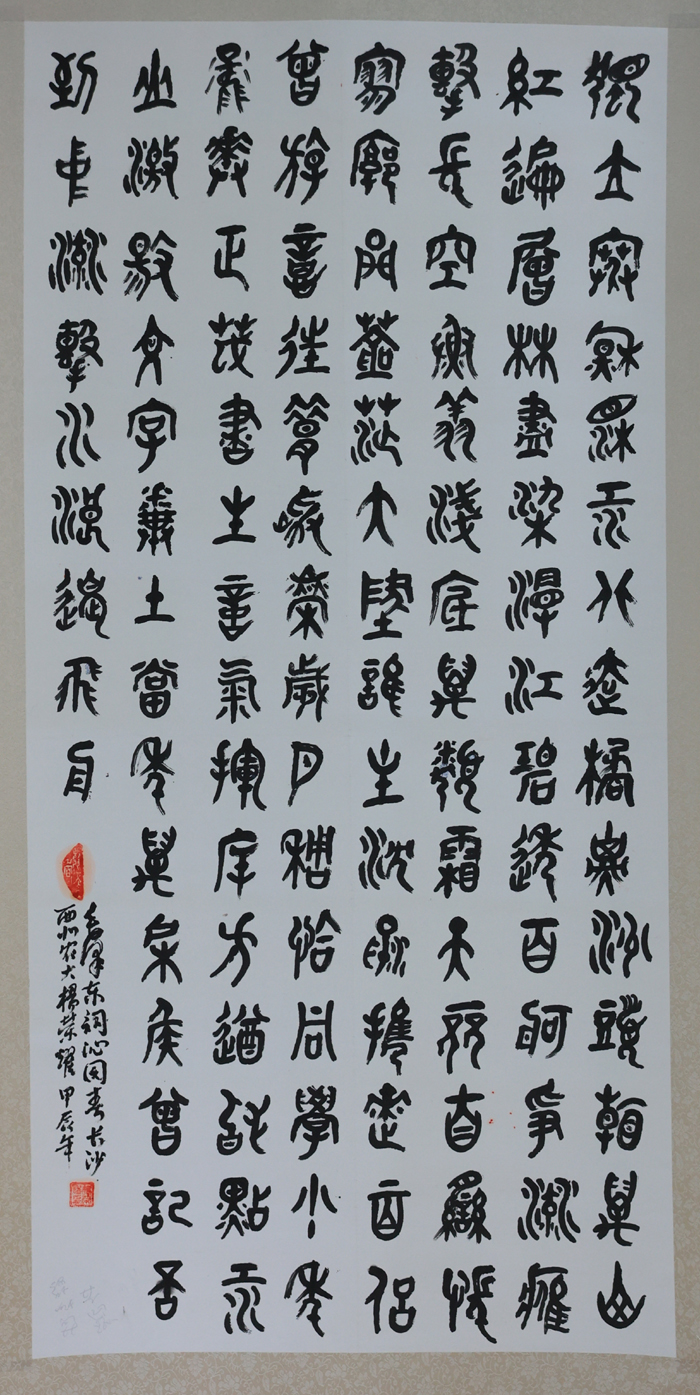 獨立寒秋湘江北去橘子洲頭看萬山
紅遍層林盡染漫江碧透百舸爭流鷹
擊長空魚翔淺底萬類霜天競自由悵
寥廓問蒼茫大地誰主沉浮攜來百侶
曾游憶往昔崢嶸歲月稠恰同學少年
風華正茂書生意氣揮斥方遒指點江
山激揚文字糞土當年萬戶侯曾記否
到中流擊水浪遏飛舟
毛泽东词沁园春长沙
西北农大楊荣耀甲辰年